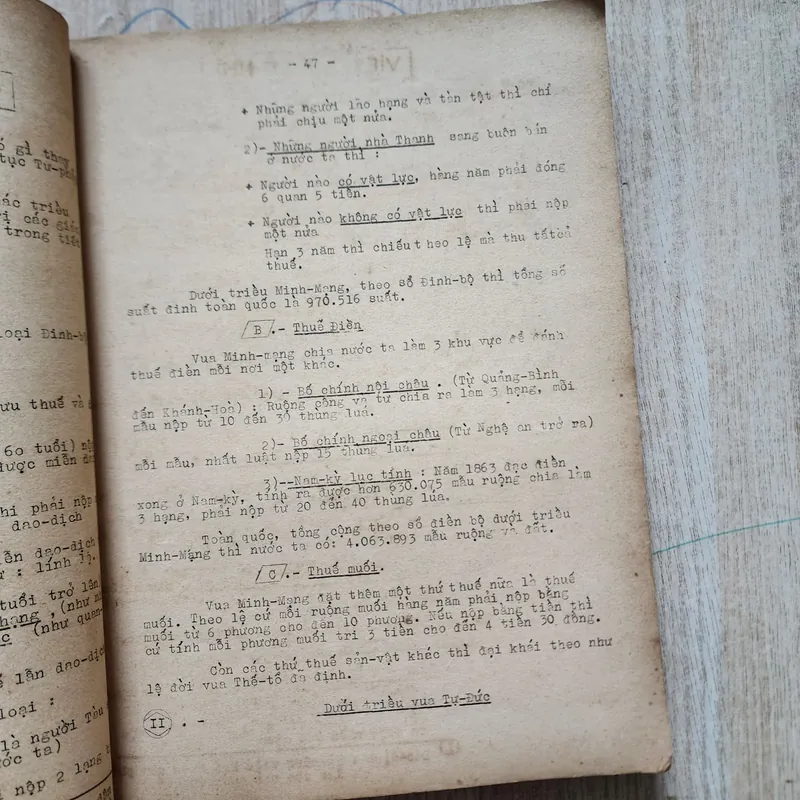 - 47 -
+ Những người lão hạng và tàn tật thì chỉ
phải chịu một nửa.
2)- Những người nhà Thanh sang buôn bán
ở nước ta thì :
+ Người nào có vật lực, hàng năm phải đóng
6 quan 5 tiền.
+ Người nào không có vật lực thì phải nộp
một nửa
Hạn 3 năm thì chiếu theo lệ mà thu tất cả
thuế.
Dưới triều Minh-Mạng, theo sổ Đinh-bộ thì tổng số
suất đinh toàn quốc là 970.516 suất.
B .- Thuế Điền
Vua Minh-mạng chia nước ta làm 3 khu vực để đánh
thuế điền mỗi nơi một khác.
1) - Bố chính nội châu . (Từ Quảng-Bình
đến Khánh-Hoà) : Ruộng công và tư chia ra làm 3 hạng, mỗi
mẫu nộp từ 10 đến 30 thùng lúa.
2)- Bố chính ngoại châu (Từ Nghệ an trở ra)
mỗi mẫu, nhất luật nộp 15 thùng lúa.
3)--Nam-kỳ lục tỉnh : Năm 1863 đạc điền
xong ở Nam-kỳ, tính ra được hơn 630.075 mẫu ruộng chia làm
3 hạng, phải nộp từ 20 đến 40 thùng lúa.
Toàn quốc, tổng cộng theo số điền bộ dưới triều
Minh-Mạng thì nước ta có: 4.063.893 mẫu ruộng và đất.
C .- Thuế muối.
Vua Minh-Mạng đặt thêm một thứ thuế nữa là thuế
muối. Theo lệ cứ mỗi ruộng muối hàng năm phải nộp bằng
muối từ 6 phương cho đến 10 phương. Nếu nộp bằng tiền thì
cứ tính mỗi phương muối trị 3 tiền cho đến 4 tiền 30 đồng.
Còn các thứ thuế sản-vật khác thì đại khái theo như
lệ đời vua Thế-tổ đã định.
II . - Dưới triều vua Tự-Đức
gì thay
tục Tư-ph
các triều
vị các
trong tiết
loại Đinh-b
ưu thuế và
60 tuổi) n
được miễn
hi phải nộp
dao-dịch
iễn dao-dịch
: lính lệ.
tuổi trở lên
hạng (như
(như quan-
ế lẫn dao-dịch
loại :
là người Tàu
ớc ta)
nộp 2 lạng